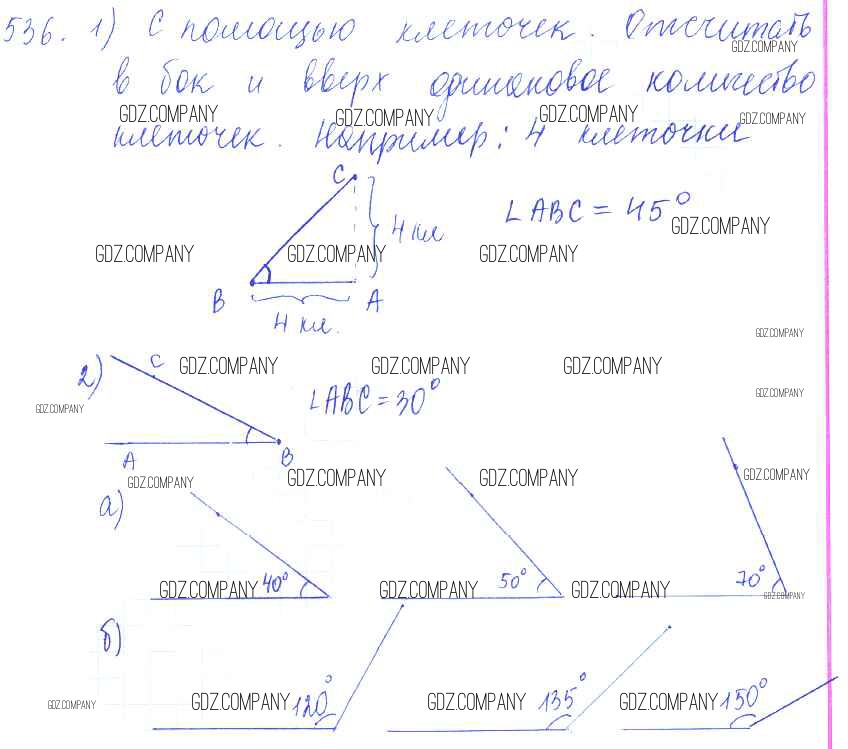 536. 1) С помощью клеточек. Отсчитать
GDZ.COMPANY
в бок и вверх одинаковое количество
GDZ.COMPANY GDZ.COMPANY GDZ.COMPANY GDZ.COMPANY
клеточек. Например: 4 клеточки
C
4 кл
∠ABC = 45°
GDZ.COMPANY
GDZ.COMPANY GDZ.COMPANY GDZ.COMPANY
B A
4 кл.
GDZ.COMPANY
2) C GDZ.COMPANY GDZ.COMPANY GDZ.COMPANY
∠ABC = 30°
GDZ.COMPANY
GDZ.COMPANY
A B
GDZ.COMPANY GDZ.COMPANY GDZ.COMPANY GDZ.COMPANY
а)
GDZ.COMPANY 40° GDZ.COMPANY 50° GDZ.COMPANY 70°
GDZ.COMPANY
б)
GDZ.COMPANY GDZ.COMPANY 120° GDZ.COMPANY 135° GDZ.COMPANY 150°